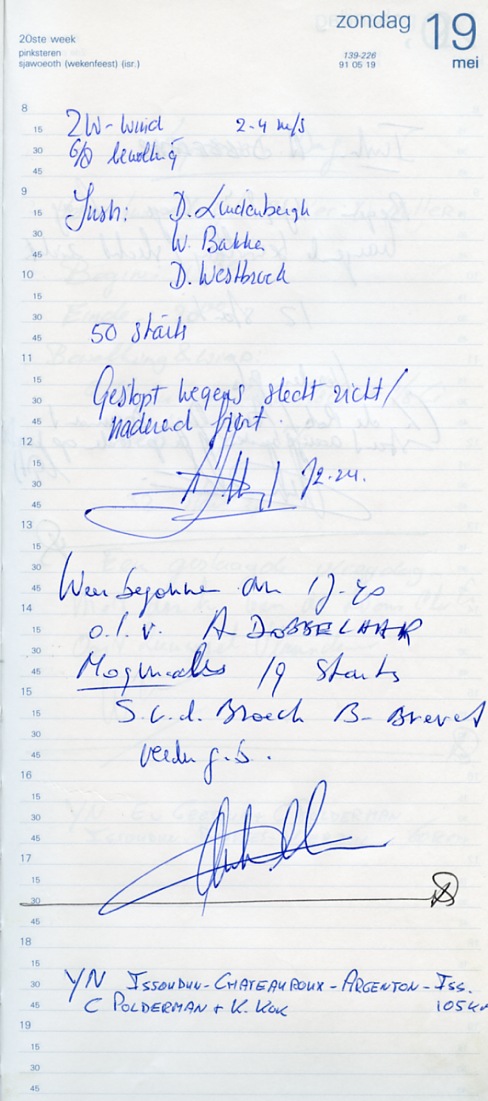 20ste week
pinksteren
sjawoeoth (wekenfeest) (isr.)
zondag 19
139-226
91 05 19
mei
8
15 ZW-wind 2-4 m/s
30 6/8 bewolking
45
9
15 Instr: D. Lindenbergh
30 W. Bakker
45
10 D. Westbroek
15
30
45 50 starts
11
15
30 Gestopt wegens slecht zicht/
45 naderend front.
12
15
30
45
13
15
30
45 Weer begonnen om
14
15 o.l.v. A DOBBELAAR
30
45 19 starts
15
15 S.v.d. Broech B-Brevet
30
45 verder g.b.
16
15
30
45
17
15
30
45
18
15
30 YN ISSOUDUN-CHATEAUROUX-ARGENTON-ISS.
45 C POLDERMAN + K. KOK 105KM
19
15
30
45